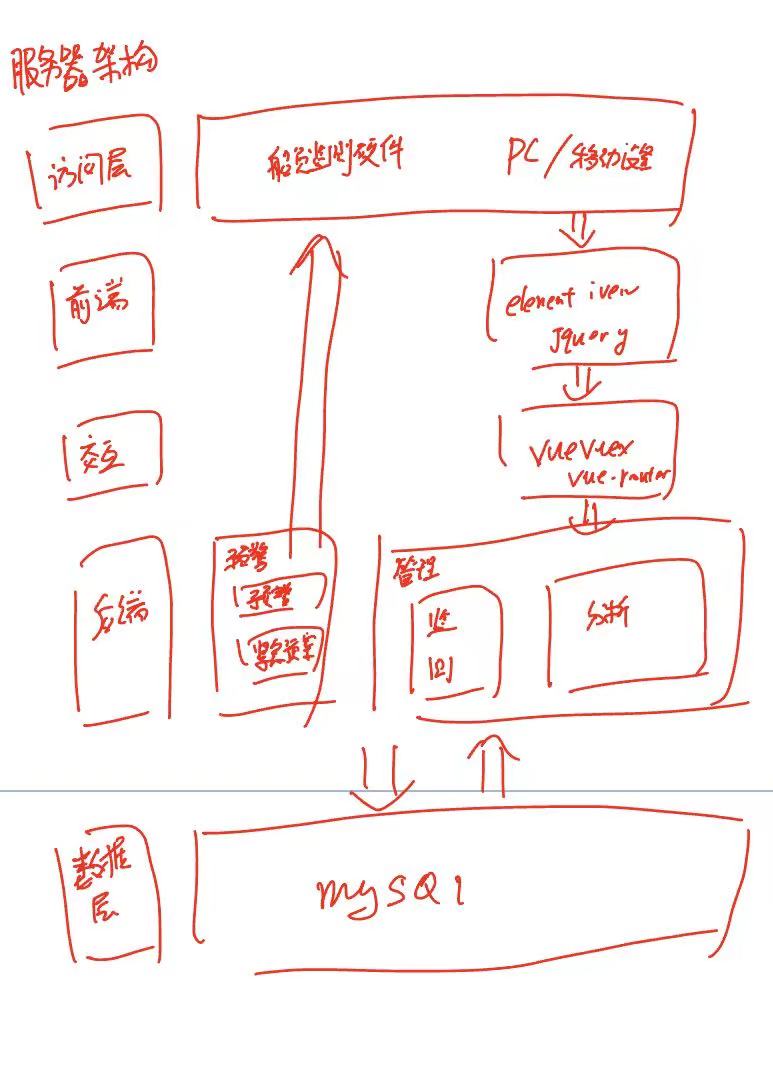 服务器架构
访问层
船员监测硬件
PC/移动设备
前端
element iview
Jquery
交互
vue vuex
vue-router
后端
预警
紧急预案
管理
分析
数据
层
mysql